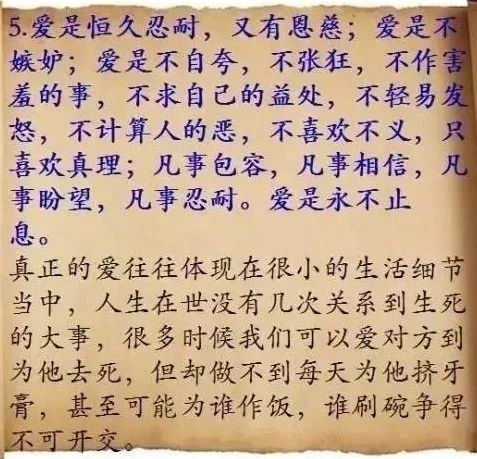 5.爱是恒久忍耐，又有恩慈；爱是不
嫉妒；爱是不自夸，不张狂，不作害
羞的事，不求自己的益处，不轻易发
怒，不计算人的恶，不喜欢不义，只
喜欢真理；凡事包容，凡事相信，凡
事盼望，凡事忍耐。爱是永不止
息。
真正的爱往往体现在很小的生活细节
当中，人生在世没有几次关系到生死
的大事，很多时候我们可以爱对方到
为他去死，但却做不到每天为他挤牙
膏，甚至可能为谁作饭，谁刷碗争得
不可开交。